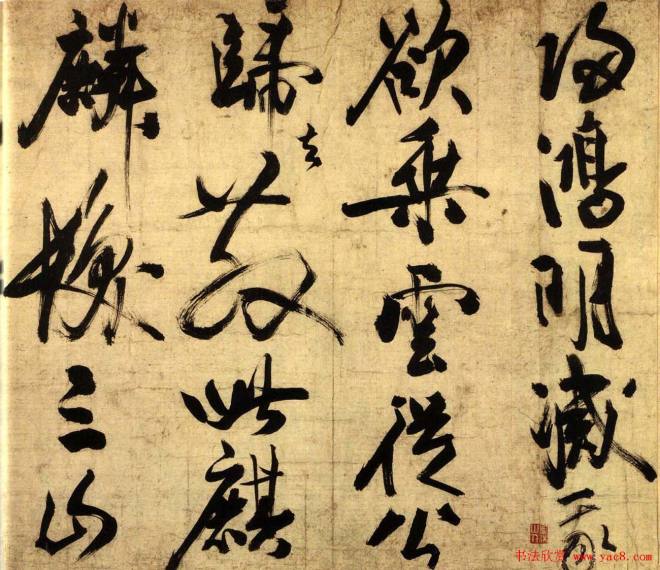 歸鴻明滅我
欲乘雲從公
歸去散此麒
麟髮三山
书法欣赏 www.yac8.com